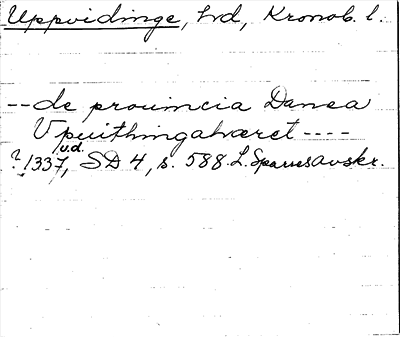 Uppvidinge, hd, Kronob. l.
-- de prouincia Danca
Vpuithingahæret ----
? 1337, u.d. SD 4, s. 588. L. Sparres avskr.